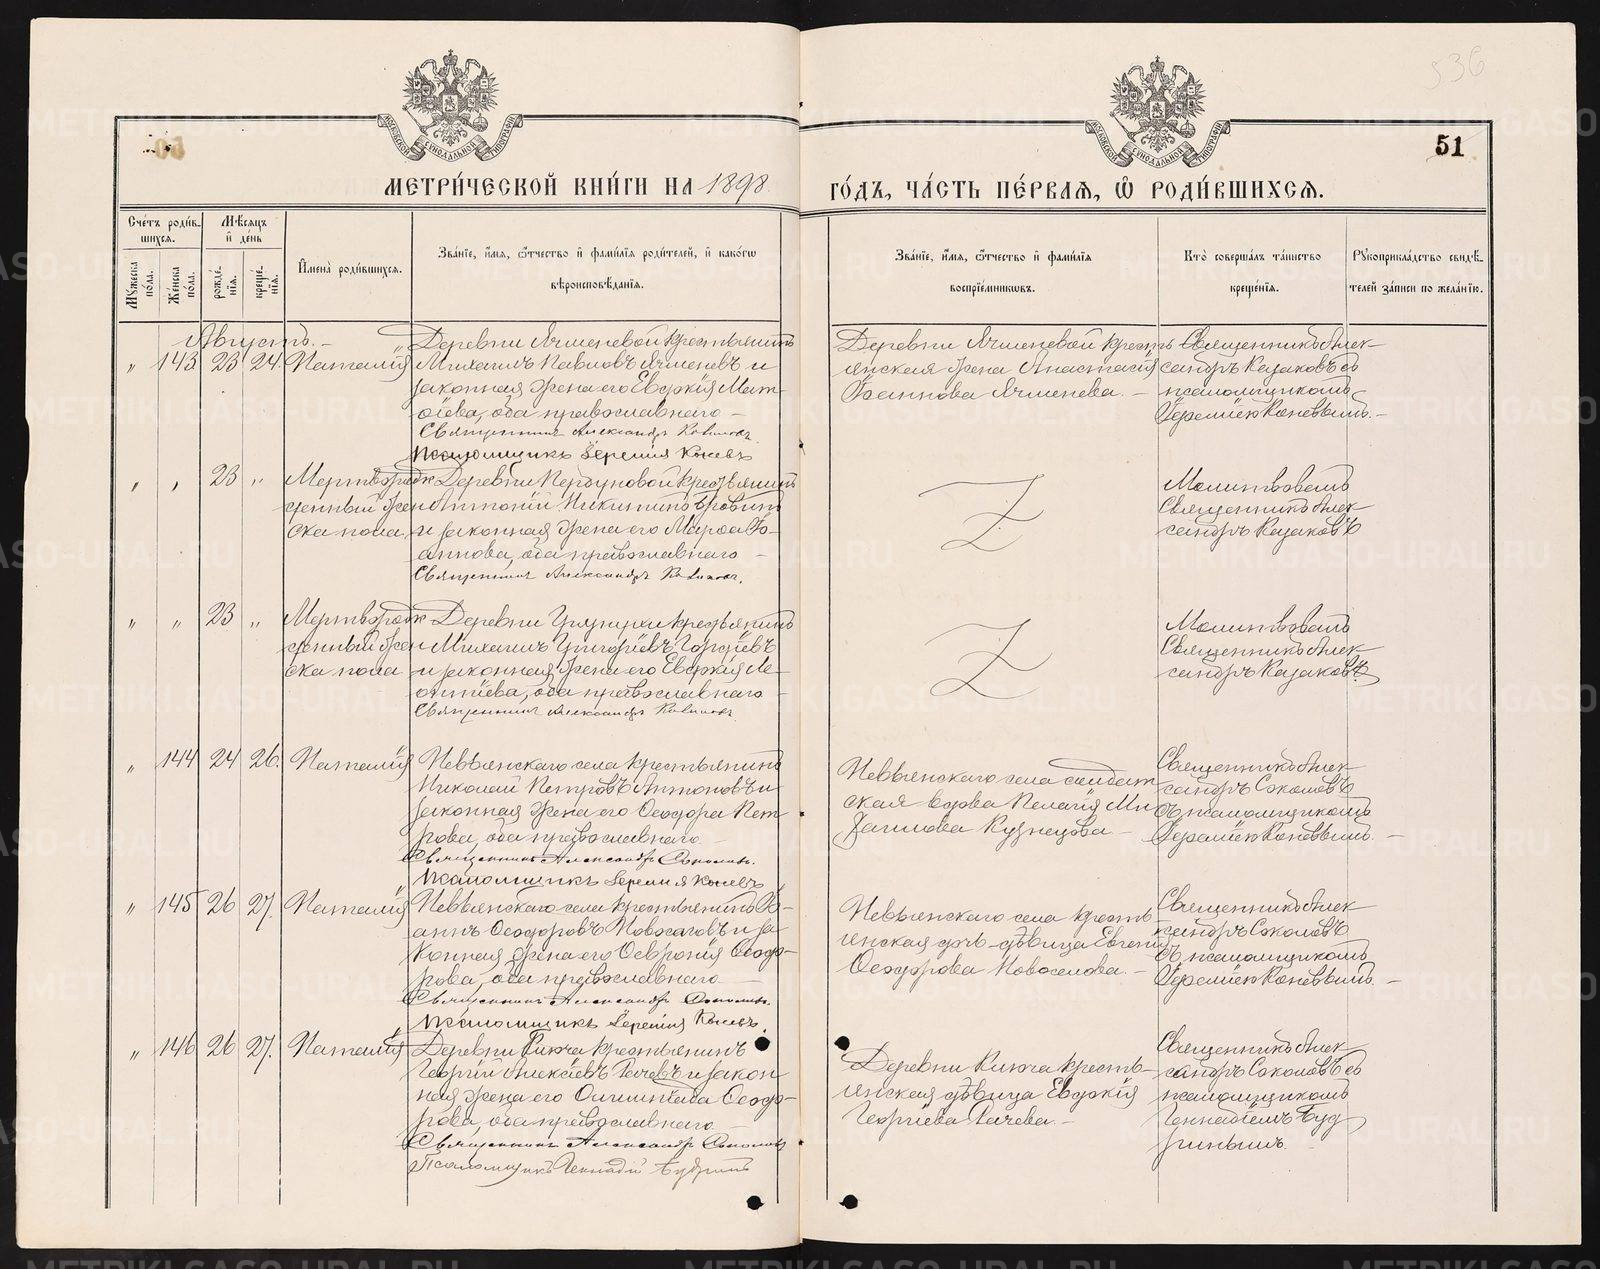 536
51
МЕТРИ́ЧЕСКОЙ КНИ́ГИ НА 1898
ГО́ДЪ, ЧА́СТЬ ПЕ́РВАѦ, Ѽ РОДИ́ВШИХСѦ.
Сче́тъ роди́в-
шихсѧ.
Мꙋ́жеска по́ла.
Же́нска по́ла.
Мѣ́сѧцъ
и҆ де́нь
рожде́-
нїѧ.
креще́-
нїѧ.
И҆мена̀ роди́вшихсѧ.
Зва́нїе, и҆́мѧ, ѻ҆́тчество и҆ фами́лїѧ роди́телей, и҆ како́гѡ
вѣроисповѣ́данїѧ.
Зва́нїе, и҆́мѧ, ѻ҆́тчество и҆ фами́лїѧ
воспрїе́мникѡвъ.
Кто̀ соверша́лъ та́инство
креще́нїѧ.
Рꙋкоприкла́дство свидѣ́-
телей за́писи по жела́нїю.
Августъ.
„ 143. 23 24. Наталія
Деревни Ячменевой крестьянинъ
Михаилъ Павловъ Ячменевъ и
законная жена его Евдокія Мат-
ѳіева, оба православнаго
Священникъ Александръ Казаковъ.
Псаломщикъ Іеремія Коневъ
Деревни Ячменевой кресть-
янская жена Анастасія
Іоаннова Ячменева.
Священникъ Алек-
сандръ Казаковъ съ
псаломщикомъ
Іереміею Коневымъ.
„ „ 23 „
Мертворож-
денный жен-
ска пола.
крестьянинъ
Антоній Никитинъ
и законная жена его Марѳа Іо-
аннова, оба православнаго
Священникъ Александръ Казаковъ.
Молитвовалъ
Священникъ Алек-
сандръ Казаковъ
„ „ 23 „
Мертворож-
денный жен-
ска пола
крестьянинъ
Михаилъ Григоріевъ Гордѣевъ
и законная жена его Евдокія Ле-
онтіева, оба православнаго
Священникъ Александръ Казаковъ.
Молитвовалъ
Священникъ Алек-
сандръ Казаковъ
„ 144 24 26. Наталія
Невьянскаго села крестьянинъ
Николай Петровъ Антоновъ и
законная жена его Ѳеодора Пет-
рова, оба православнаго
Священникъ Александръ Соколовъ.
Псаломщикъ Іеремія Коневъ
Невьянскаго села солдат-
ская вдова Пелагія Ми-
хаилова Кузнецова
Священникъ Алек-
сандръ Соколовъ
съ псаломщикомъ
Іереміею Коневымъ.
„ 145 26 27. Наталія
Невьянскаго села крестьянинъ Іо-
аннъ Ѳеодоровъ и за-
конная жена его Ѳеѵронія Ѳеодо-
рова, оба православнаго
Священникъ Александръ Соколовъ.
Псаломщикъ Іеремія Коневъ.
Невьянскаго села кресть-
янская дѣвица Евгенія
Ѳеодорова Новоселова.
Священникъ Алек-
сандръ Соколовъ
съ псаломщикомъ
Іереміею Коневымъ.
„ 146 26 27. Наталія
Деревни Ключа крестьянинъ
Георгій Алексіевъ Рачевъ и закон-
ная жена его Олимпіада Ѳеодо-
рова, оба православнаго
Священникъ Александръ Соколовъ
Псаломщикъ Геннадій Будринъ
Деревни Ключа кресть-
янская дѣвица Евдокія
Георгіева Рачева.
Священникъ Алек-
сандръ Соколовъ съ
псаломщикомъ
Геннадіемъ Буд-
ринымъ.
METRIKI.GASO-URAL.RU